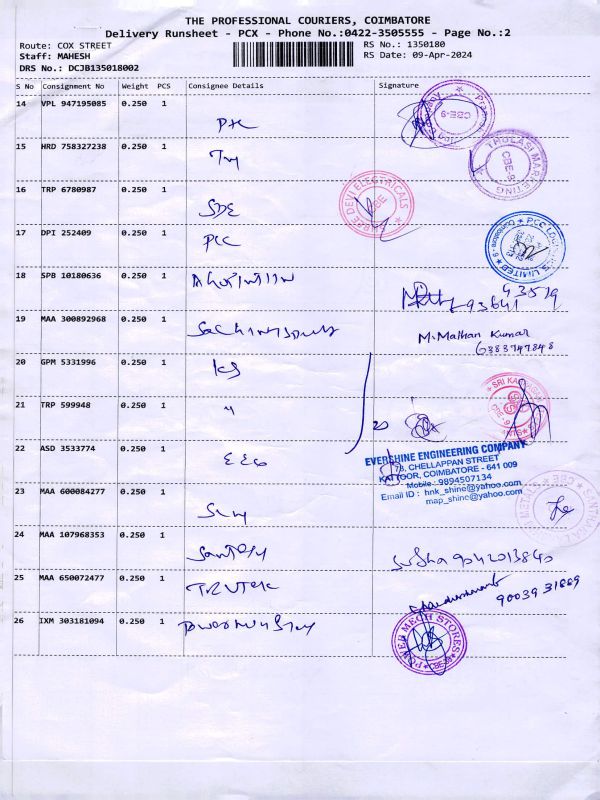 THE PROFESSIONAL COURIERS, COIMBATORE
Delivery Runsheet - PCX - Phone No.:0422-3505555 - Page No.:2
Route: COX STREET
RS No.: 1350180
Staff: MAHESH
RS Date: 09-Apr-2024
DRS No.: DCJB135018002
S No Consignment No Weight PCS Consignee Details Signature
14 VPL 947195085 0.250 1
CBE-9
15 HRD 758327238 0.250 1
THULASI MARKETING
CBE-9
16 TRP 6780987 0.250 1
SDE
DEVI ELECTRICALS
CBE
17 DPI 252409 0.250 1
PCC
18 SPB 10180636 0.250 1
43519
93641
19 MAA 300892968 0.250 1
M. Mathan Kumar
6383747848
20 GPM 5331996 0.250 1
KS
21 TRP 599948 0.250 1
"
SRI
22 ASD 3533774 0.250 1
EEC
EVERSHINE ENGINEERING COMPANY
78, CHELLAPPAN STREET
KATTOOR, COIMBATORE - 641 009
Mobile : 9894507134
Email ID : hnk_shine@yahoo.com
map_shine@yahoo.com
23 MAA 600084277 0.250 1
24 MAA 107968353 0.250 1
Santosh
Sudha 9042013840
25 MAA 650072477 0.250 1
90039 31669
26 IXM 303181094 0.250 1
POWER MECH STORES
CBE-9